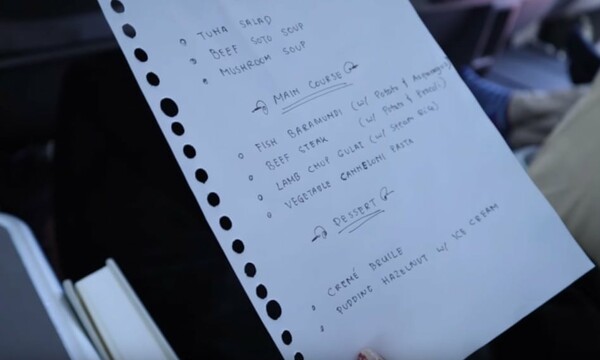 TUNA SALAD
BEEF SOTO SOUP
MUSHROOM SOUP
MAIN COURSE
FISH BARAMUNDI (W/ Potato & Asparagus)
BEEF STEAK (W/ Potato & Brocoli)
LAMB CHOP GULAI (W/ Steam Rice)
VEGETABLE CANNELONI PASTA
DESSERT
CREMÉ BRUILE
PUDDING HAZELNUT W/ ICE CREAM